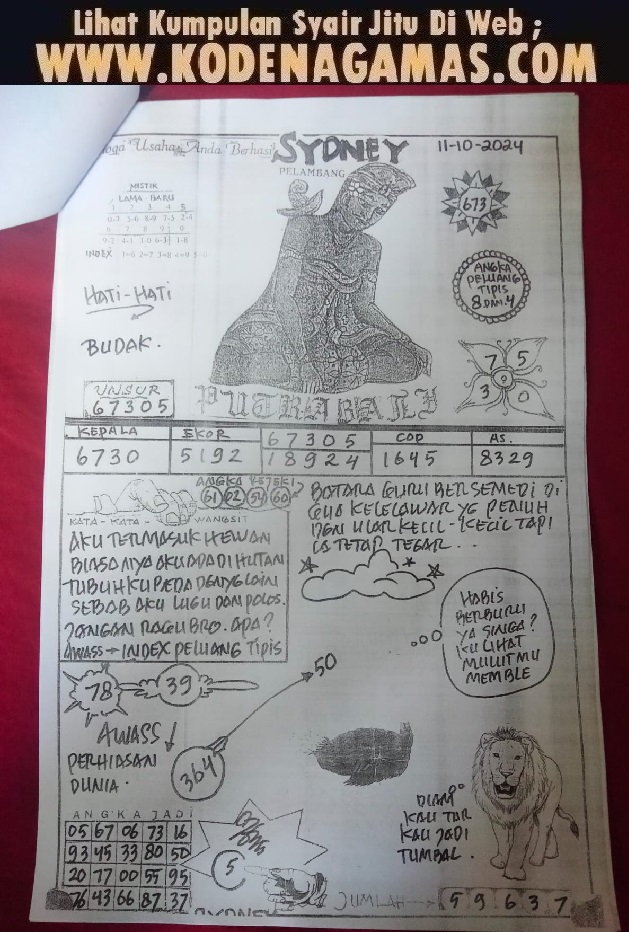 Lihat Kumpulan Syair Jitu Di Web ;
WWW.KODENAGAMAS.COM
Usaha Anda Berhasil
SYDNEY
11-10-2024
PELAMBANG
MISTIK
LAMA BARU
INDEX
673
ANGKA
PELUANG
TIPIS
8 DAN 4
HATI-HATI
BUDAK.
7 5
9
3 0
UNSUR
67305
PUTRA BALI
KEPALA EKOR 67305 COP AS.
6730 5192 18924 1645 8329
ANGKA
61 62 54 60
KATA - KATA - WANGSIT
AKU TERMASUK HEWAN
BIASANYA AKU ADA DI HUTAN
TUBUHKU BEDA DENG LAIN
SEBAB AKU LUGU DAN POLOS.
JANGAN RAGU BRO. APA?
AWASS → INDEX PELUANG TIPIS
BATARA GURU BERSEMEDI DI
GUA KELELAWAR YG PENUH
DGN ULAR KECIL-KECIL TAPI
IA TETAP TEGAR...
HABIS
BERBURU
YA SINGA?
KULIHAT
MULUTMU
MEMBLE
78 39
50
364
AWASS ↓
PERHIASAN
DUNIA.
DIAM
KAU TAK
KAU JADI
TUMBAL.
ANGKA JADI
05 67 06 73 16
93 45 33 80 50
20 77 00 55 95
76 43 66 87 37
5
SYDNEY
JUMLAH → 5 9 6 3 7